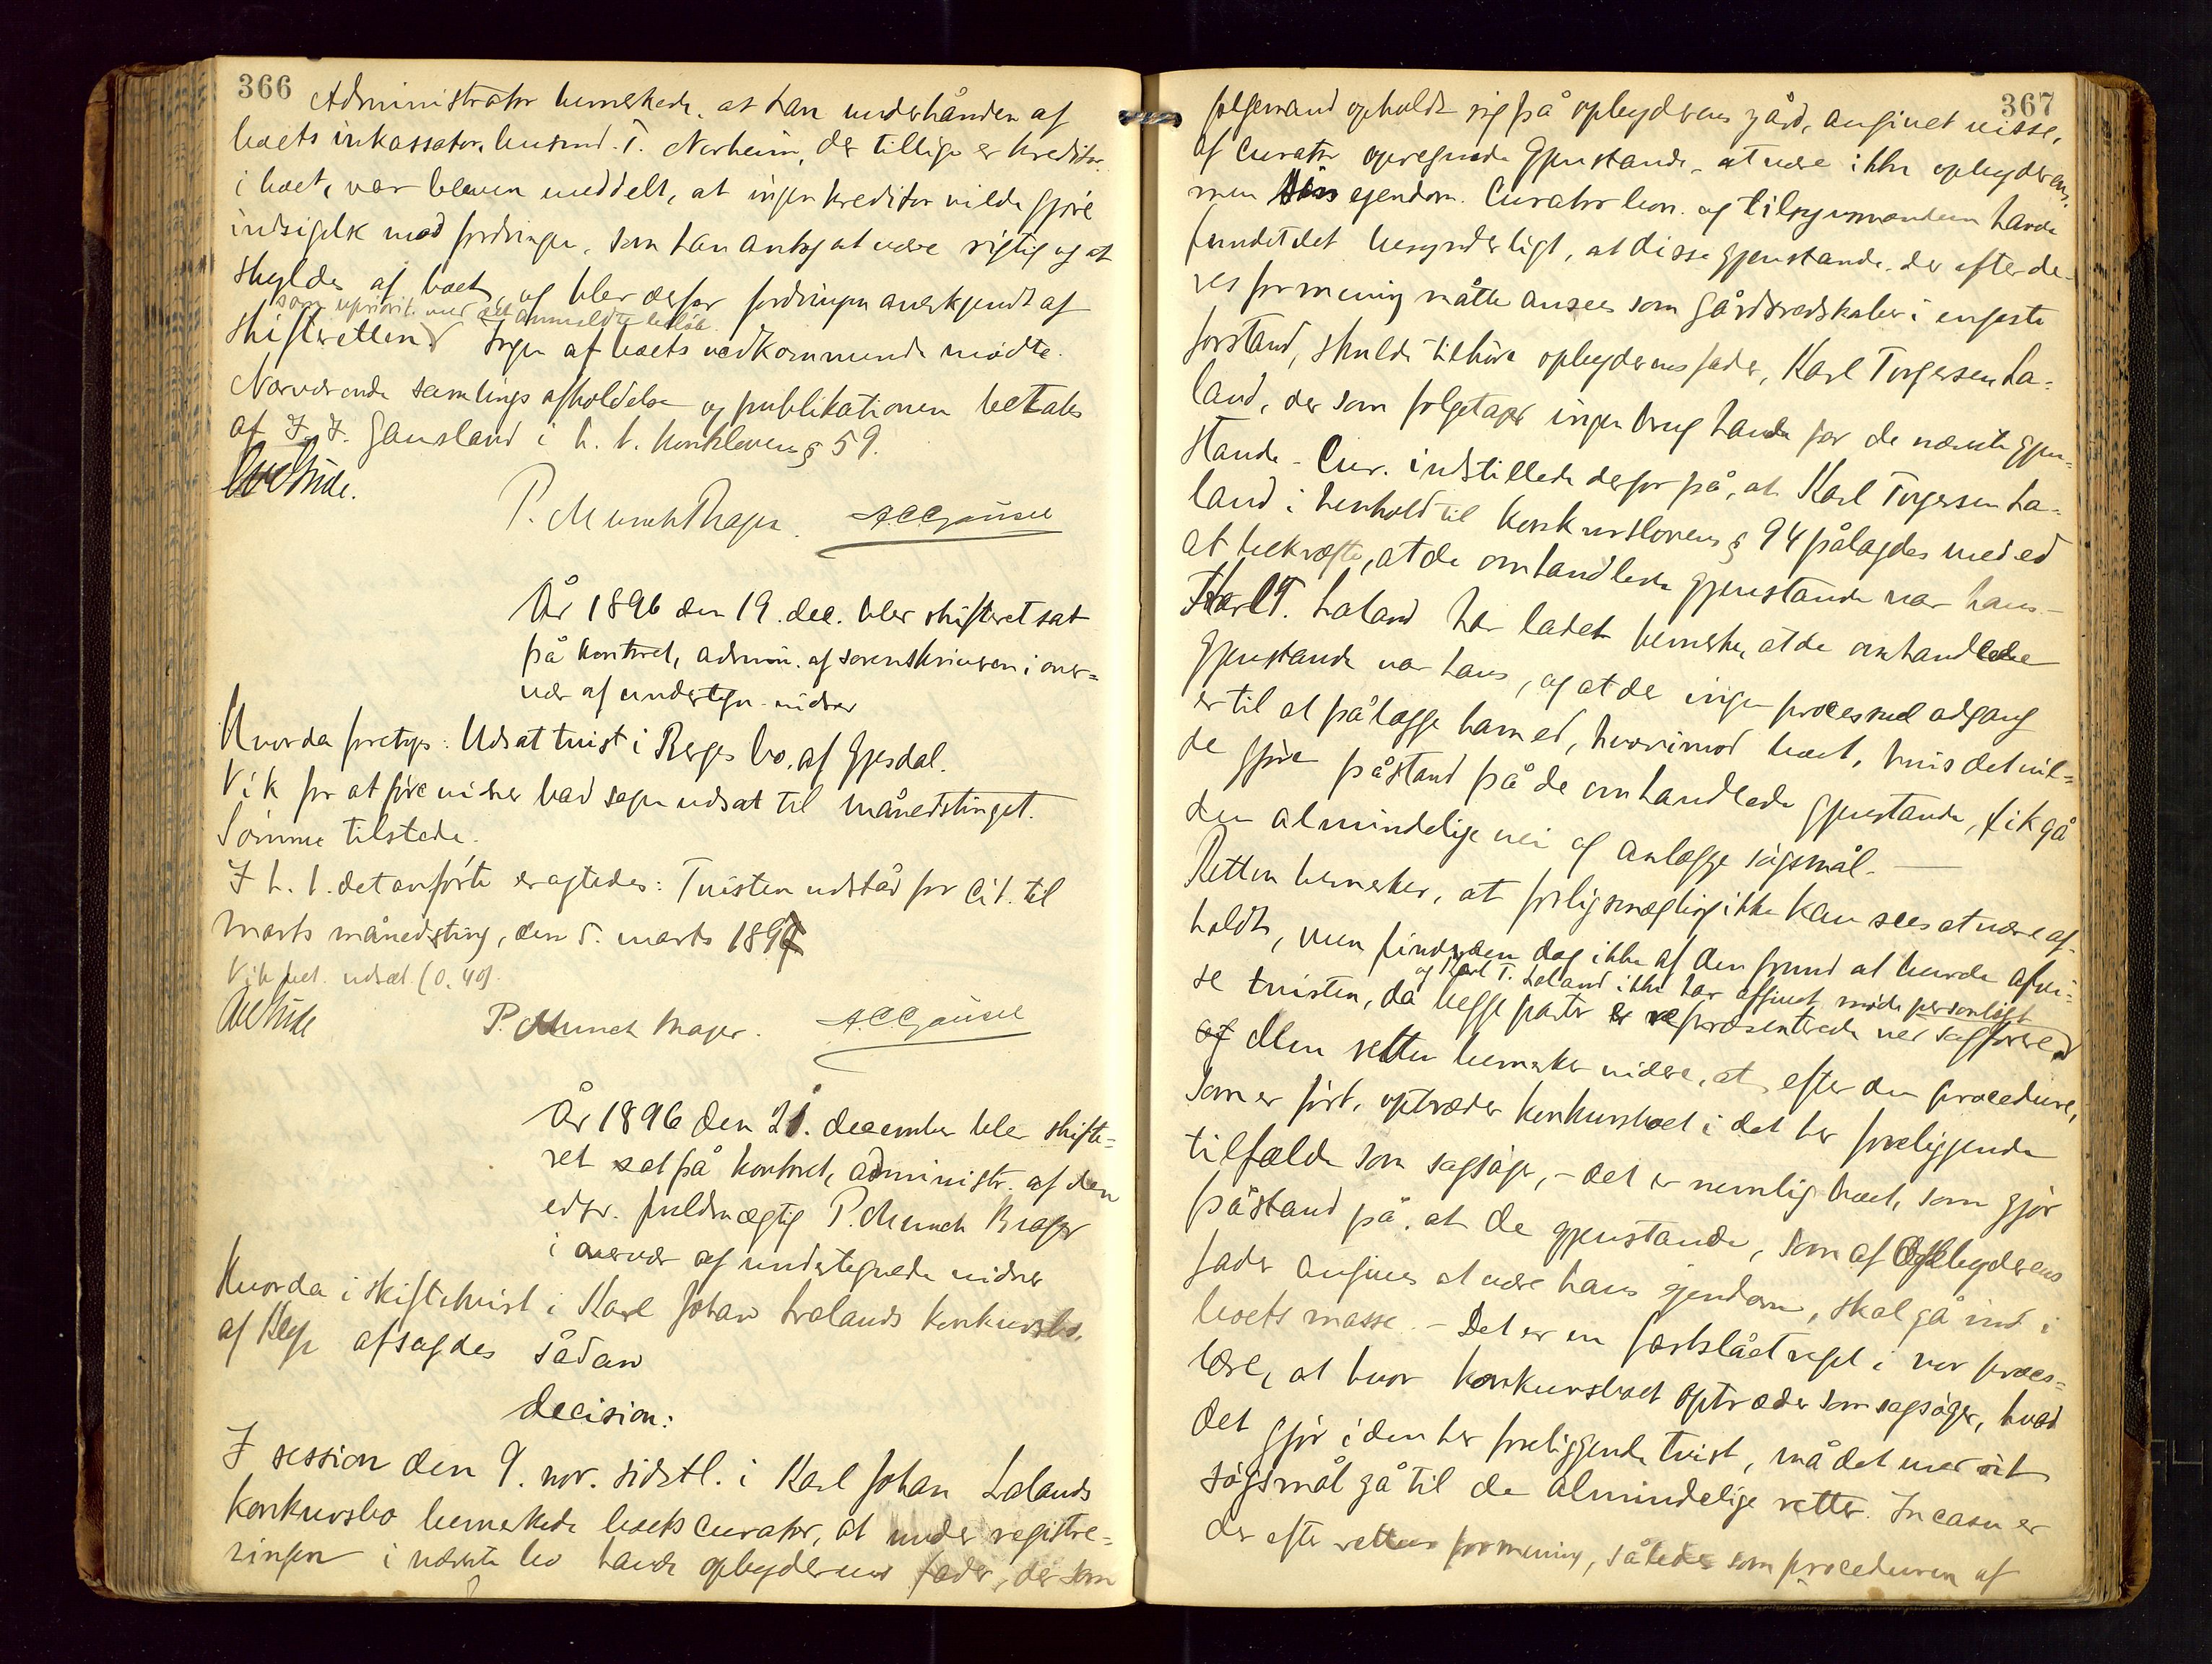 366
Administrator bemerkede, at han underhånden af
boets inkassator, lensmd. T. Nerheim, der tillige er kreditor
i boet, var bleven meddelt, at ingen kreditor vilde gjøre
indsigelse mod fordringen, som han antog at være rigtig og at
skyldes af boet, og blev derfor fordringen anerkjendt af
som uprivit. med det anmeldte beløb.
skifteretten Ingen af boets vedkommende mødte.
Nærværende samlings afholdelse og publikationen betales
af I. I. Gausland i h. t. konkloven § 59.
P. Munch Prager. A.C. Gausel
År 1896 den 19. dec. blev skifteret sat
på kontoret, admin. af sorenskriveren i over=
vær af undertegn. vidner
Hvorda foretoges: Udsat tvist i Berges bo, af Gjesdal.
Vik for at føre vidner bad sagen udsat til månedstinget.
Sømme tilstede.
I h. t. det anførte eragtedes: Tvisten udstår for Cit. til
marts månedsting, den 5. marts 1897
Vik bet. udsæt. (0.40).
P. Munch Prager. A.C. Gausel
År 1896 den 21. december blev skifte=
ret sat på kontoret, administr. af den
edsv. fuldmægtig P. Munch Prager
i overvær af undertegnede vidner
Hvorda i skiftetvist i Karl Johan Lalands konkursbo,
af Klep afsagdes sådan
decision:
I session den 9. nov. sidstl. i Karl Johan Lalands
konkursbo bemerkede boets curator, at under registre=
ringen i nævnte bo havde opbyderens fader, der som
367
folgemand opholdt sig på opbyderens gård, angivet visse,
af curator opregnede gjenstande, at være ikke opbyderens,
men sin ejendom. Curator bon. og tilsynsmanden havde
fundet det besynderligt, at disse gjenstande, der efter de=
res formening måtte ansees som gårdsredskaber i engeste
forstand, skulde tilhøre opbyderens fader, Karl Torgersen La=
land, der som folgetager ingen brug havde for de nævnte gjen=
stande. Cur. indstillede derfor på, at Karl Torgersen La=
land i henhold til konkurslovens § 94 pålagdes med ed
at bekræfte, at de omhandlede gjenstande var hans.
Karl T. Laland har ladet bemerke, at de omhandlede
gjenstande var hans, og at der ingen processuel adgang
er til at pålægge ham ed, hvorimod boet, hvis det vil=
de gjøre påstand på de omhandlede gjenstande, fik gå
den almindelige vei og anlægge søgsmål.
Retten bemerker, at forligsmægling ikke kan sees at være af=
holdt, men finder den dog ikke af den grund at burde afvi=
og Karl T. Laland ikke har afgivet møde personligt
se tvisten, da begge parter er repræsenterede ved sagfører
Men retten bemerker videre, at, efter den procedure,
som er ført, optræder konkursboet i det her foreliggende
tilfælde som sagsøger, - det er nemlig boet, som gjør
påstand på, at de gjenstande, som af Opbyderens
fader angives at være hans ejendom, skal gå ind i
boets masse. - Det er en fastslået regel i vor proces=
lære, at hvor konkursboet optræder som sagsøger, hvad
det gjør i den her foreliggende tvist, må det med sit
søgsmål gå til de almindelige retter. In casu er
der efter rettens formening, således som proceduren af